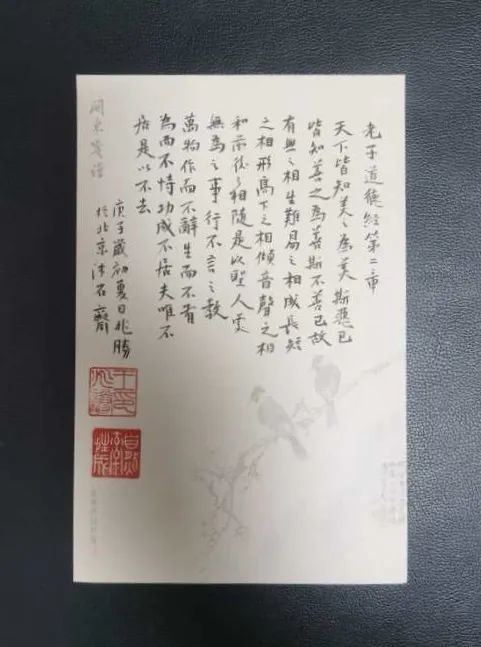 老子道德經第二章
天下皆知美之為美斯惡已
皆知善之為善斯不善已故
有無之相生難易之相成長短
之相形高下之相傾音聲之相
和前後之相隨是以聖人處
無為之事行不言之教
萬物作而不辭生而不有
為而不恃功成不居夫唯不
居是以不去
庚子歲初夏日兆勝
於北京石齋